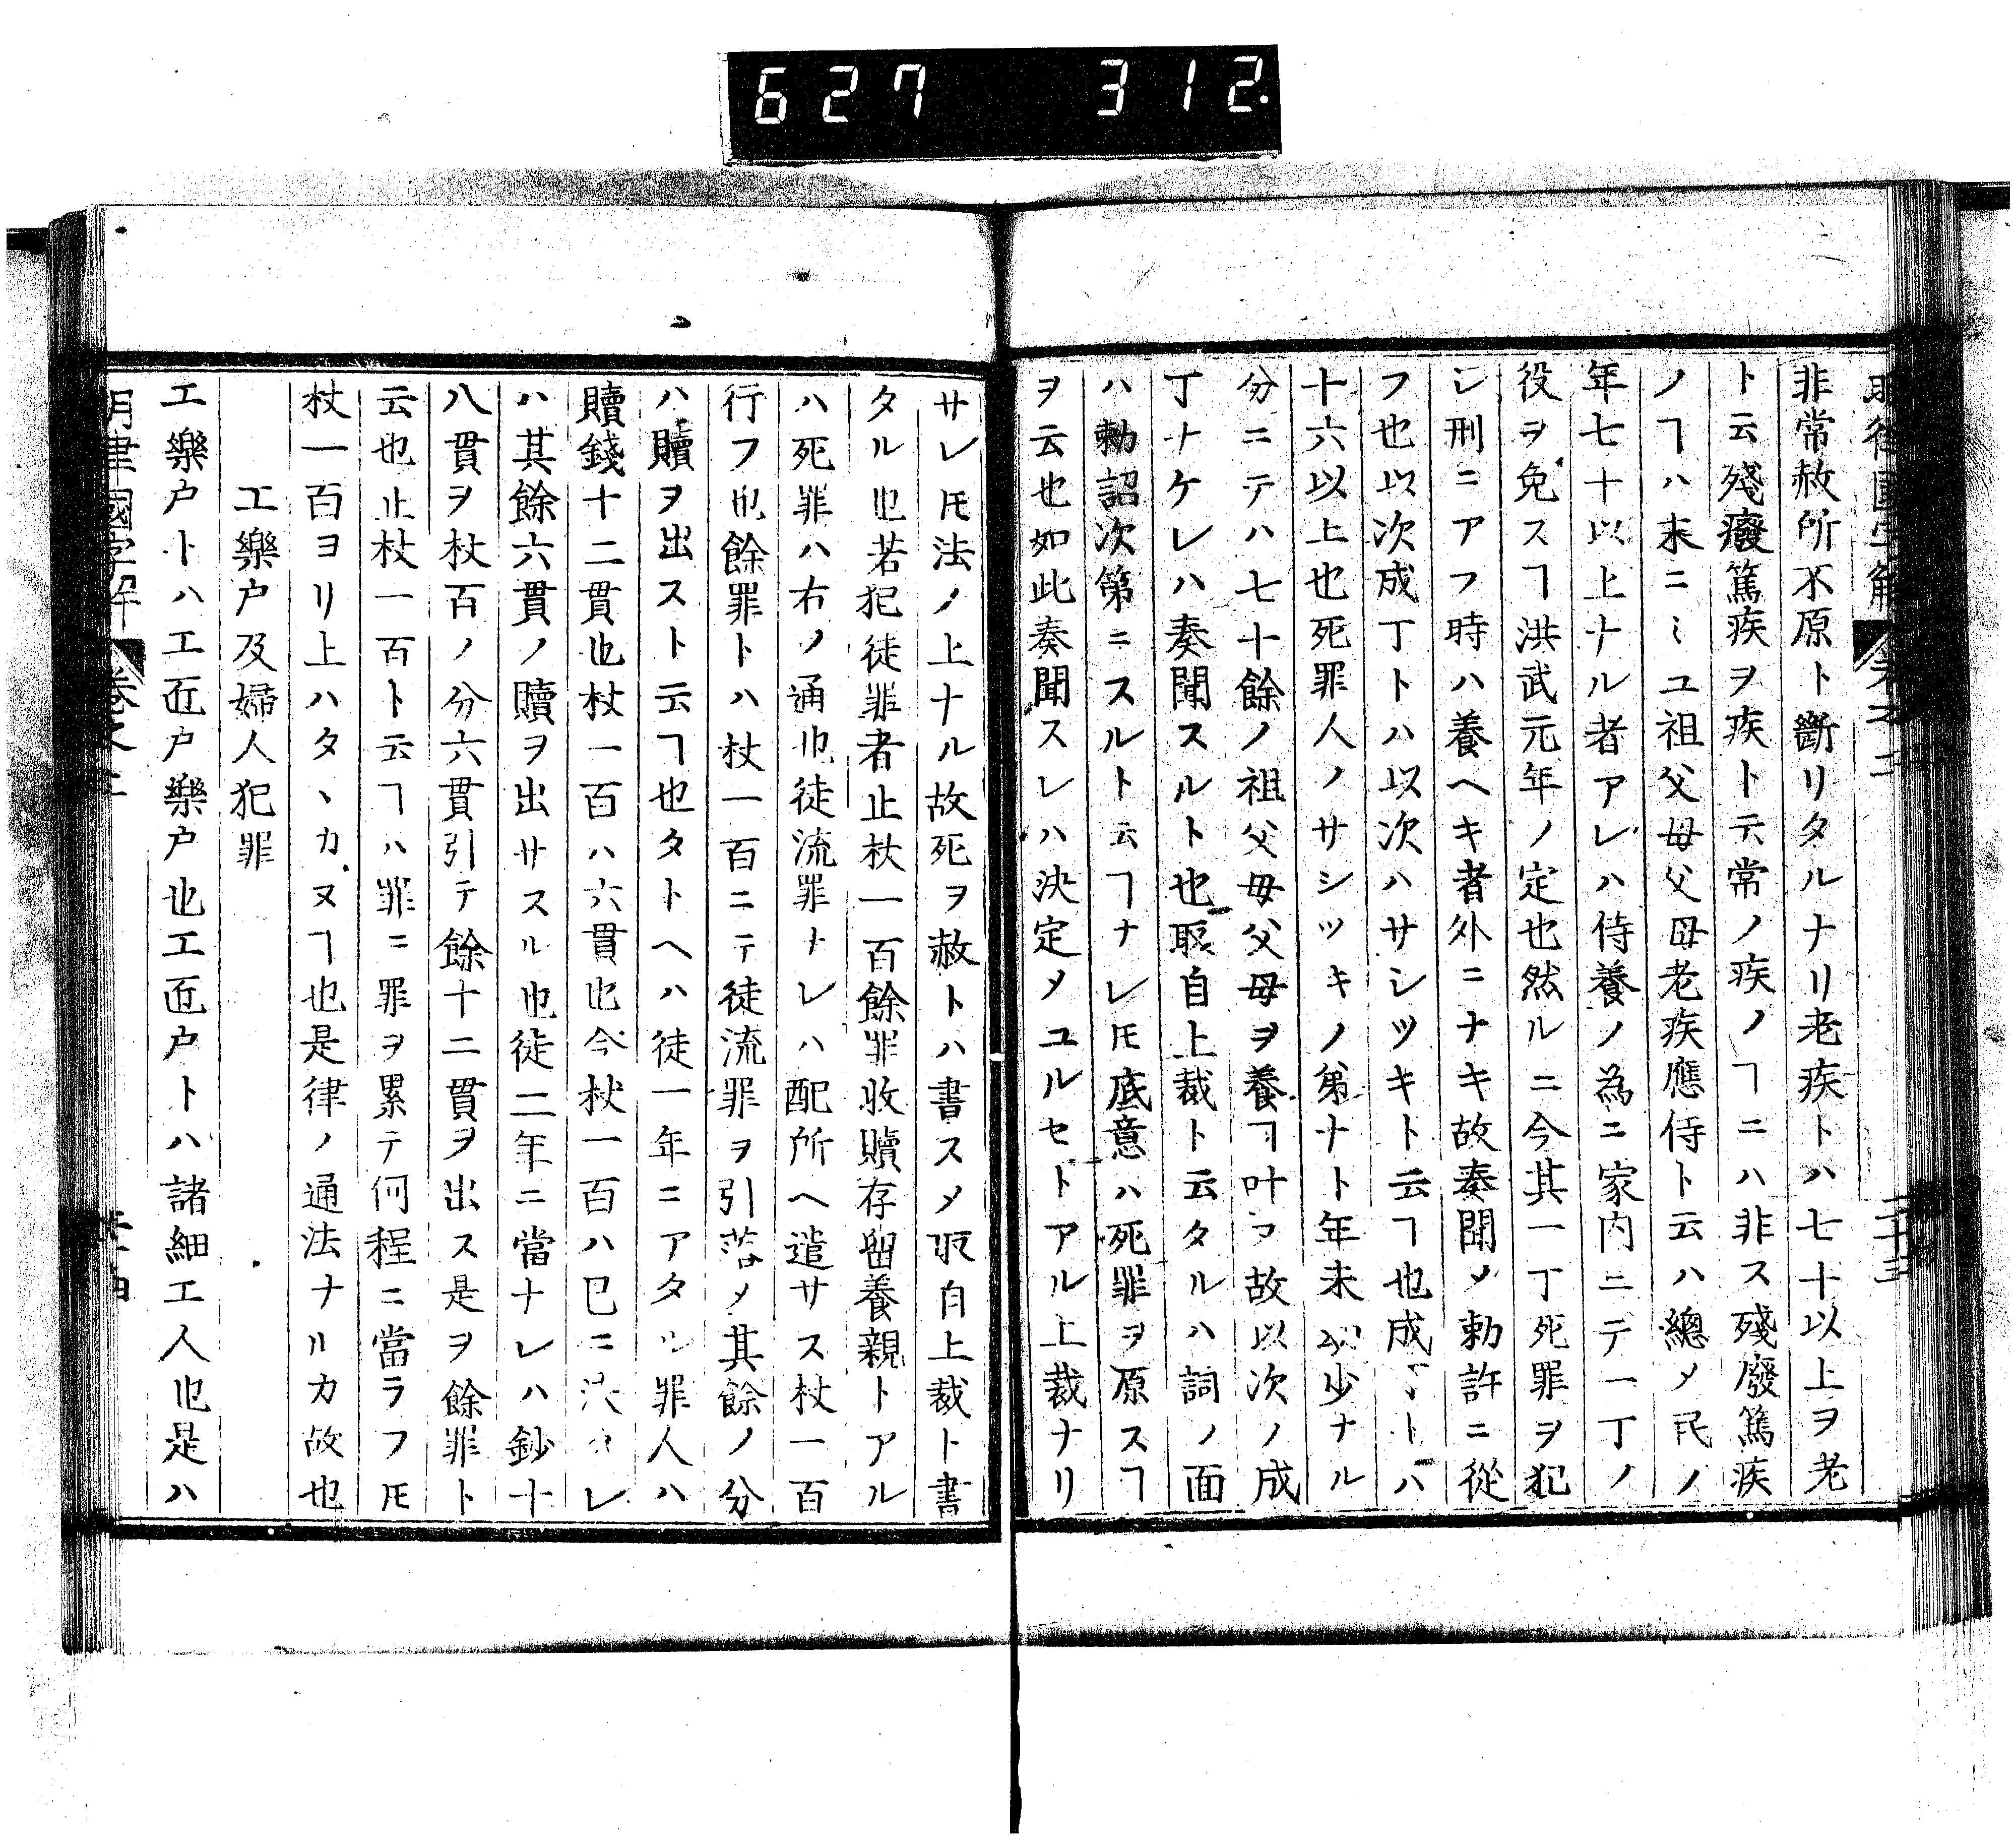 627 312.
非常赦所不原ト斷リタルナリ老疾トハ七十以上ヲ老
ト云殘癈篤疾ヲ疾ト云常ノ疾ノヿニハ非ス殘廢篤疾
ノヿハ末ニミユ祖父母父母老疾應侍ト云ハ總メ民ノ
年七十以上ナル者アレハ侍養ノ為ニ家内ニテ一丁ノ
役ヲ免スヿ洪武元年ノ定也然ルニ今其一丁死罪ヲ犯
シ刑ニアフ時ハ養ヘキ者外ニナキ故奏聞〆勅許ニ從
フ也以次成丁トハ以次ハサシツキト云ヿ也成丁トハ
十六以上也死罪人ノサシツキノ弟ナト年未以少ナル
分ニテハ七十餘ノ祖父母父母ヲ養ヿ叶ヌ故以次ノ成
丁ナケレハ奏聞スルト也取自上裁ト云タルハ詞ノ面
ハ勅詔次第ニスルト云ヿナレ𪜈底意ハ死罪ヲ原スヿ
ヲ云也如此奏聞スレハ決定〆ユルセトアル上裁ナリ
サレ𪜈法ノ上ナル故死ヲ赦トハ書ス〆取自上裁ト書
タル也若犯徒罪者止杖一百餘罪收贖存留養親トアル
ハ死罪ハ右ノ通也徒流罪ナレハ配所ヘ遣サス杖一百
行フ也餘罪トハ杖一百ニテ徒流罪ヲ引落〆其餘ノ分
ハ贖ヲ出スト云ヿ也タトヘハ徒一年ニアタル罪人ハ
贖錢十二貫也杖一百ハ六貫也今杖一百ハ已ニ決タレ
ハ其餘六貫ノ贖ヲ出サスル也徒二年ニ當ナレハ鈔十
八貫ヲ杖百ノ分六貫引テ餘十二貫ヲ出ス是ヲ餘罪ト
云也止杖一百ト云ヿハ罪ニ罪ヲ累テ何程ニ當ラフ𪜈
杖一百ヨリ上ハタヽカヌヿ也是律ノ通法ナルカ故也
工樂户及婦人犯罪
工樂户トハ工匠户樂户也工匠户トハ諸細工人也是ハ
明律國字解 卷之二